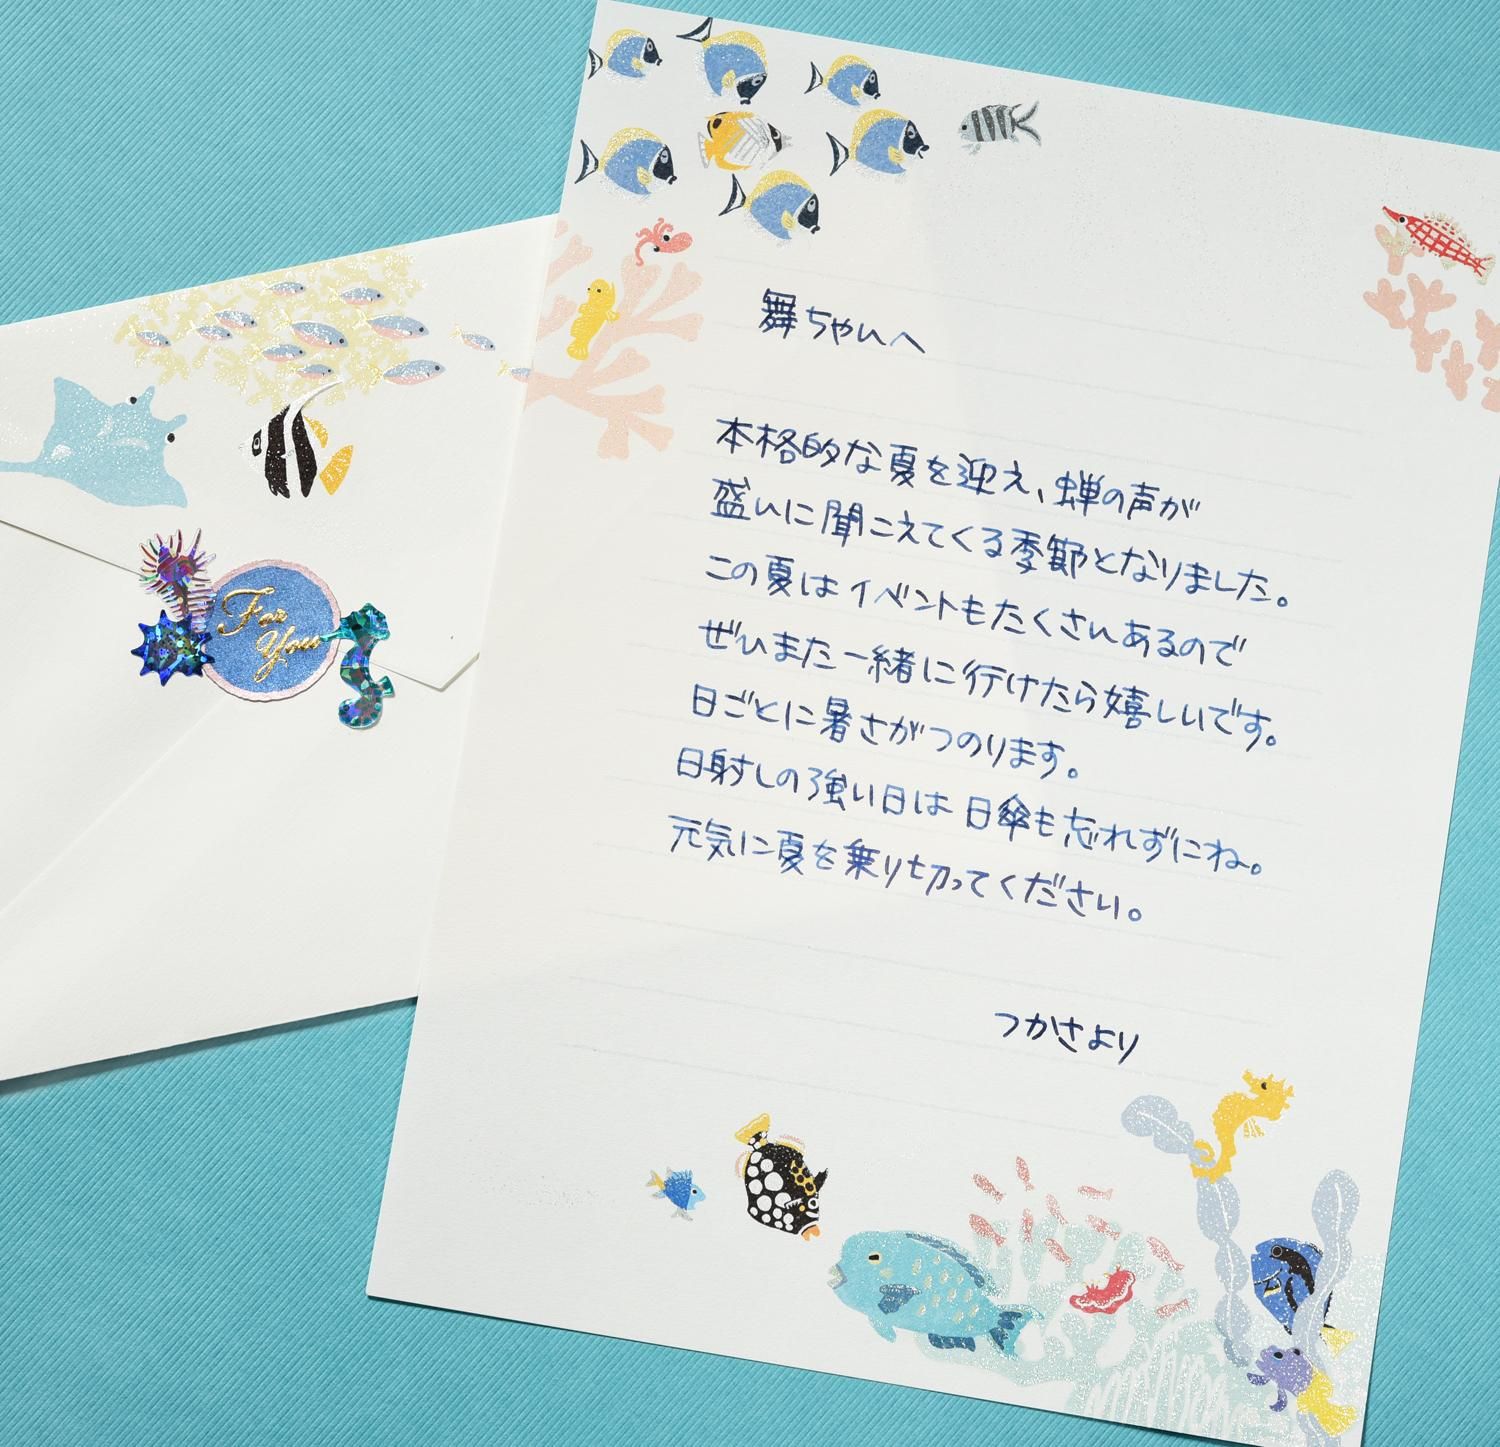 For
You
舞ちゃんへ
本格的な夏を迎え、蝉の声が
盛んに聞こえてくる季節となりました。
この夏はイベントもたくさんあるので
ぜひまた一緒に行けたら嬉しいです。
日ごとに暑さがつのります。
日射しの強い日は日傘も忘れずにね。
元気に夏を乗り切ってください。
つかさより